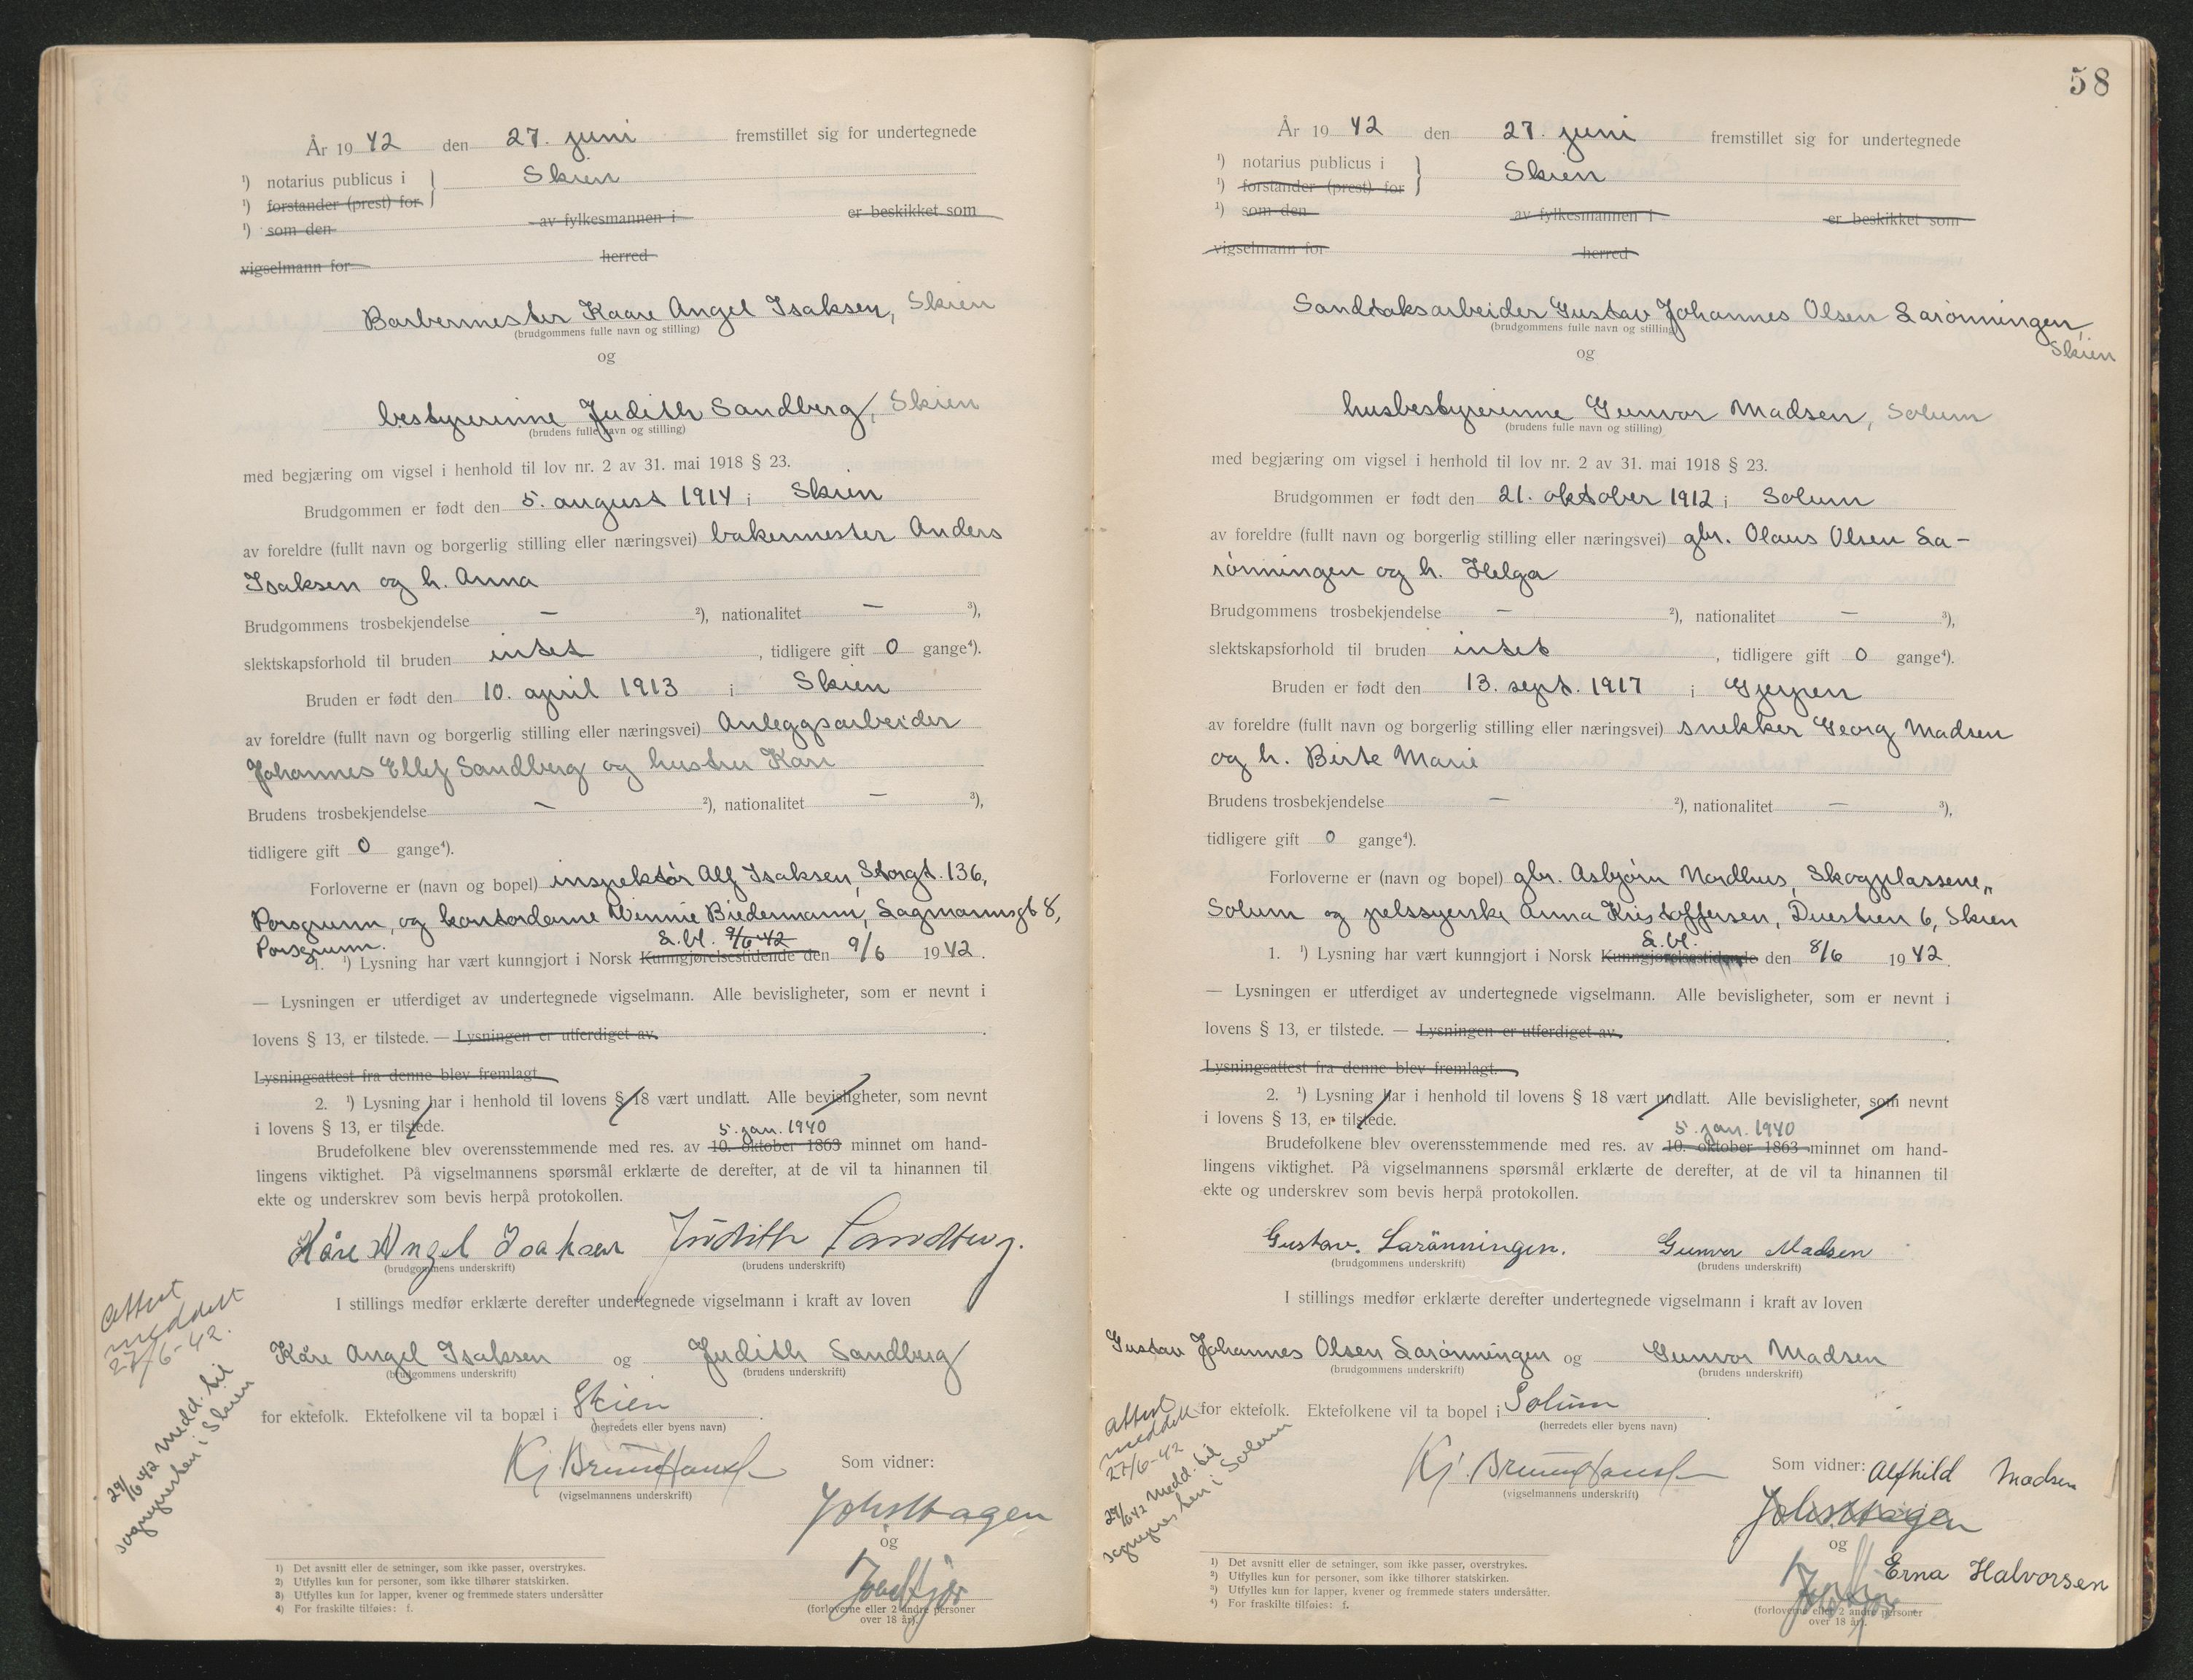 År 19 42 den 27. juni fremstillet sig for undertegnede
¹) notarius publicus i } Skien
¹) forstander (prest) for
¹) som den av fylkesmannen i er beskikket som
vigselmann for herred
Barbermester Kaare Angel Isaksen, Skien
(brudgommens fulle navn og stilling)
og
bestyrerinne Judith Sandberg, Skien
(brudens fulle navn og stilling)
med begjæring om vigsel i henhold til lov nr. 2 av 31. mai 1918 § 23.
Brudgommen er født den 5. august 1914 i Skien
av foreldre (fullt navn og borgerlig stilling eller næringsvei) bakermester Anders
Isaksen og h. Anna
Brudgommens trosbekjendelse — ²), nationalitet — ³),
slektskapsforhold til bruden intet, tidligere gift 0 gange⁴).
Bruden er født den 10. april 1913 i Skien
av foreldre (fullt navn og borgerlig stilling eller næringsvei) Anleggsarbeider
Johannes Ellef Sandberg og hustru Kari
Brudens trosbekjendelse — ²), nationalitet — ³),
tidligere gift 0 gange⁴).
Forloverne er (navn og bopel) inspektør Alf Isaksen, Storgt. 136,
Porsgrunn, og kontordame Winnie Biedermann, Sagmannsgt 8,
Porsgrunn.
S. bl. 9/6 42
1. ¹) Lysning har vært kunngjort i Norsk Kunngjørelsestidende den 9/6 1942.
— Lysningen er utferdiget av undertegnede vigselmann. Alle bevisligheter, som er nevnt i
lovens § 13, er tilstede. — Lysningen er utferdiget av.
Lysningsattest fra denne blev fremlagt
2. ¹) Lysning har i henhold til lovens § 18 vært undlatt. Alle bevisligheter, som nevnt
i lovens § 13, er tilstede.
5. jan. 1940
Brudefolkene blev overensstemmende med res. av 10. oktober 1863 minnet om hand-
lingens viktighet. På vigselmannens spørsmål erklærte de derefter, at de vil ta hinannen til
ekte og underskrev som bevis herpå protokollen.
Kåre Angel Isaksen Judith Sandberg.
(brudgommens underskrift) (brudens underskrift)
I stillings medfør erklærte derefter undertegnede vigselmann i kraft av loven
Kåre Angel Isaksen og Judith Sandberg
(brudgommens underskrift) (brudens underskrift)
for ektefolk. Ektefolkene vil ta bopæl i Skien.
(herredets eller byens navn)
Kj. Bruun Hansen
(vigselmannens underskrift)
Som vidner:
Johs Hagen
og
(forloverne eller 2 andre personer
over 18 år).
Attest
meddelt
27/6-42.
29/6 42 Medd. til
sognepresten i Skien
1) Det avsnitt eller de setninger, som ikke passer, overstrykes.
2) Utfylles kun for personer, som ikke tilhører statskirken.
3) Utfylles kun for lapper, kvener og fremmede staters undersåtter
4) For fraskilte tilføies: f.
58
År 19 42 den 27. juni fremstillet sig for undertegnede
¹) notarius publicus i } Skien
¹) forstander (prest) for
¹) som den av fylkesmannen i er beskikket som
vigselmann for herred
Sandtaksarbeider Gustav Johannes Olsen Larønningen,
Skien
(brudgommens fulle navn og stilling)
og
husbestyrerinne Gunvor Madsen, Solum
(brudens fulle navn og stilling)
med begjæring om vigsel i henhold til lov nr. 2 av 31. mai 1918 § 23.
Brudgommen er født den 21. oktober 1912 i Solum
av foreldre (fullt navn og borgerlig stilling eller næringsvei) gbr. Olaus Olsen La-
rønningen og h. Helga
Brudgommens trosbekjendelse — ²), nationalitet — ³),
slektskapsforhold til bruden intet, tidligere gift 0 gange⁴).
Bruden er født den 13. sept. 1917 i Gjerpen
av foreldre (fullt navn og borgerlig stilling eller næringsvei) snekker Georg Madsen
og h. Birte Marie
Brudens trosbekjendelse — ²), nationalitet — ³),
tidligere gift 0 gange⁴).
Forloverne er (navn og bopel) gbr. Asbjørn Nordhus, Skogplassene,
Solum og pelssyerske Anna Kristoffersen, Duestien 6, Skien
S. bl.
1. ¹) Lysning har vært kunngjort i Norsk Kunngjørelsestidende den 8/6 1942.
— Lysningen er utferdiget av undertegnede vigselmann. Alle bevisligheter, som er nevnt i
lovens § 13, er tilstede. — Lysningen er utferdiget av.
Lysningsattest fra denne blev fremlagt.
2. ¹) Lysning har i henhold til lovens § 18 vært undlatt. Alle bevisligheter, som nevnt
i lovens § 13, er tilstede.
5. jan. 1940
Brudefolkene blev overensstemmende med res. av 10. oktober 1863 minnet om hand-
lingens viktighet. På vigselmannens spørsmål erklærte de derefter, at de vil ta hinannen til
ekte og underskrev som bevis herpå protokollen.
Gustav. Larönningen. Gunvor Madsen
(brudgommens underskrift) (brudens underskrift)
I stillings medfør erklærte derefter undertegnede vigselmann i kraft av loven
Gustav Johannes Olsen Larønningen og Gunvor Madsen
(brudgommens underskrift) (brudens underskrift)
for ektefolk. Ektefolkene vil ta bopel i Solum.
(herredets eller byens navn)
Kj. Bruun Hansen
(vigselmannens underskrift)
Som vidner: Alfhild Madsen
Johs Hagen
og
Erna Halvorsen
(forloverne eller 2 andre personer
over 18 år).
Attest
meddelt
27/6-42
29/6 42 Medd. til
sognepresten i Solum
1) Det avsnitt eller de setninger, som ikke passer, overstrykes.
2) Utfylles kun for personer, som ikke tilhører statskirken.
3) Utfylles kun for lapper, kvener og fremmede staters undersåtter.
4) For fraskilte tilføies: f.